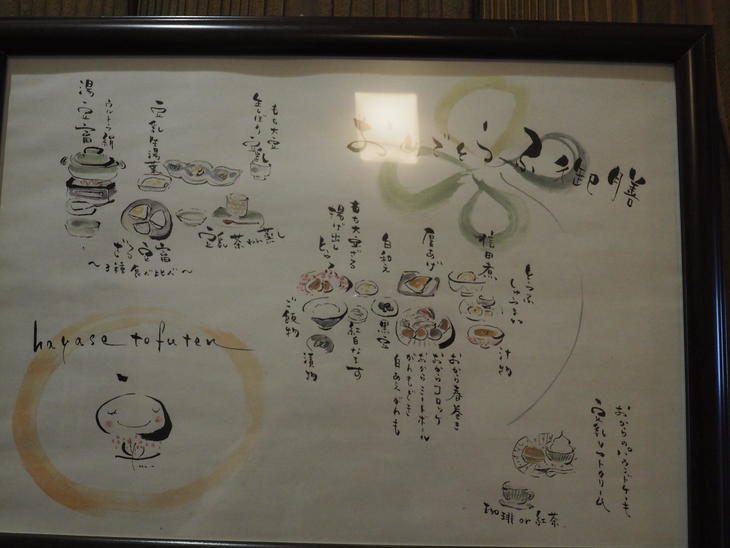 もち大豆
生しぼり豆乳
豆乳生湯葉
ウルトラ絹
湯豆富
豆乳茶わん蒸し
ざる豆富
～3種食べ比べ～
膳
とうふ
しゅうまい
汁物
信田煮
厚あげ
白和え
黒豆
もち大豆ざる
揚げ出し
とうふ
紅白なます
ご飯物
漬物
おから春巻き
おからコロッケ
おからミートボール
がんもどき
白あえがんも
おからのパウンドケーキ
ソフトクリーム
珈琲 or 紅茶
hayase tofuten